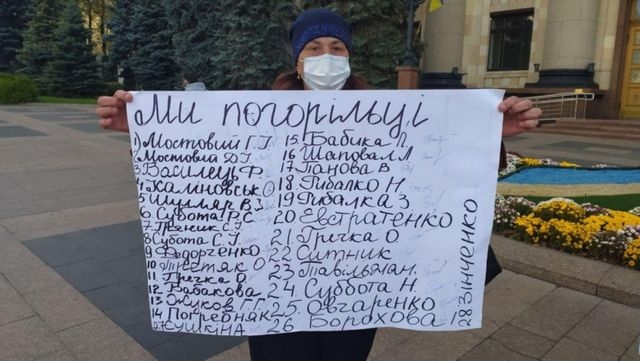 Ми погорільці
1) Мостовий Г.І.
2 Мостовий Д.І.
3 Василець Ф.
4 Калиновськ О
5 Шуляр В.З.
6 Субота Р.С.
7 Греник С.І
8 Субота С.І.
9 Федорченко
10 Третяк О
11 Гречка О.
12 Бабакова
13 Жуков Г.Г.
14 Погребняк
27 Сушкіна
15. Бабика Л
16 Шаповал Л
17 Ганова В
18. Рибалко Н.
19 Рибалка З
20 Євстратенко
21. Гречка О
22 Ситник
23 Тавільжан.
24. Суббота Н.
25. Овчаренко
26 Борохова
28 Зінченко